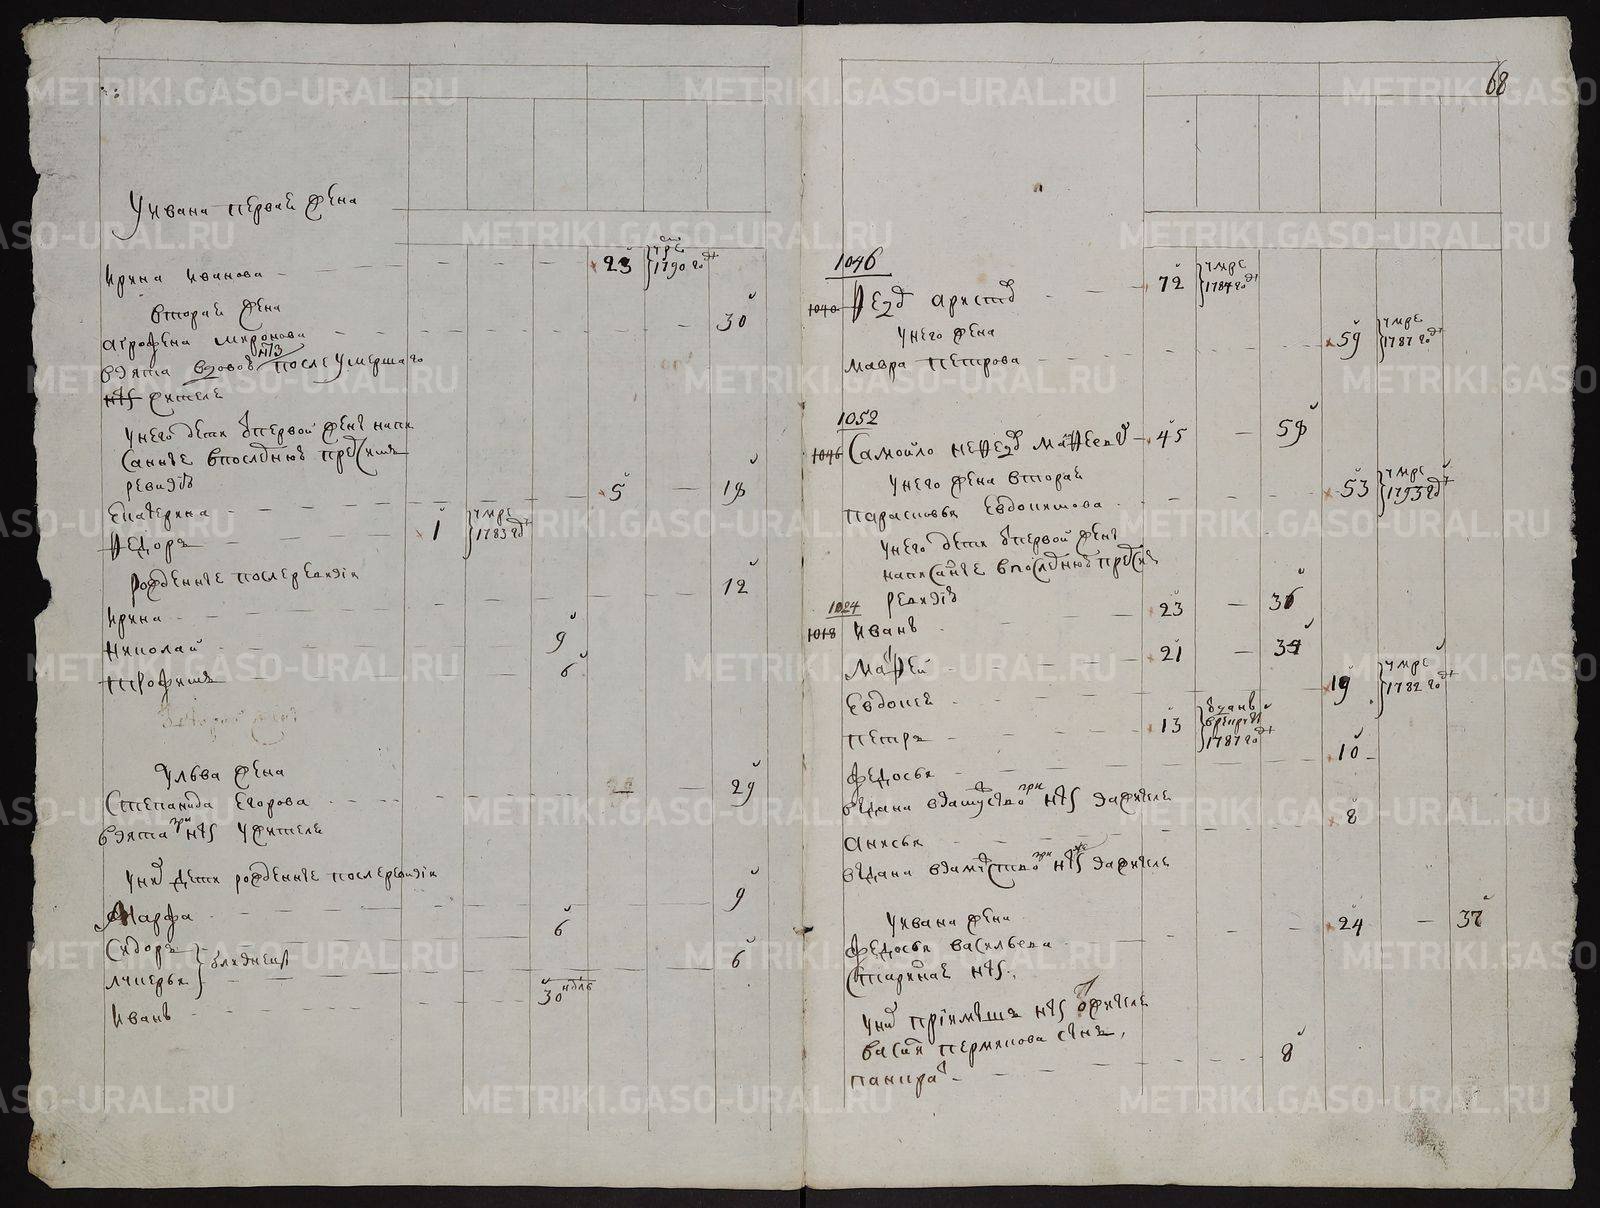 У ивана первая жена
Ирина иванова 23 умре 1790 год
вторая жена
агрофена миронова 30
взята после умершаго
жителя
у него дети от первой жены напи
санные в последнюю пред сим
ревизию
Екатерина 5 18
Федоръ 1 умре 1783 год
рожденные после ревизии
Ирина 12
николай 9
трофимъ 6
У льва жена
Степанида Егорова 29
взята при нтз у жителя
у них дети рожденные после ревизии
Марфа 9
Сидоръ 6
лукерья близнецы 6
Иванъ 30 нđль
68
1046
1040 аристов 72 умре 1784 год
у него жена
мавра петрова 59 умре 1787 год
1052
1046 Самойло матфеев 45 59
у него жена вторая
парасковья Евдокимова 53 умре 1793 год
у него дети от первой жены
написанные в последнюю пред сию
ревизию
1024
1018 Иванъ 23 36
матфей 21 34
Евдокея 19 умре 1782 год
петръ 13 в рекруты 1787 год
федосья 10
выдана в замужство при нтз за жителя
анисья 8
выдана в замужство при нтз за жителя
У ивана жена
федосья васильева 24 37
Старинная нтз.
у них приемышъ нтз жителя
василья пермякова сынъ,
панкрат 8
METRIKI.GASO-URAL.RU